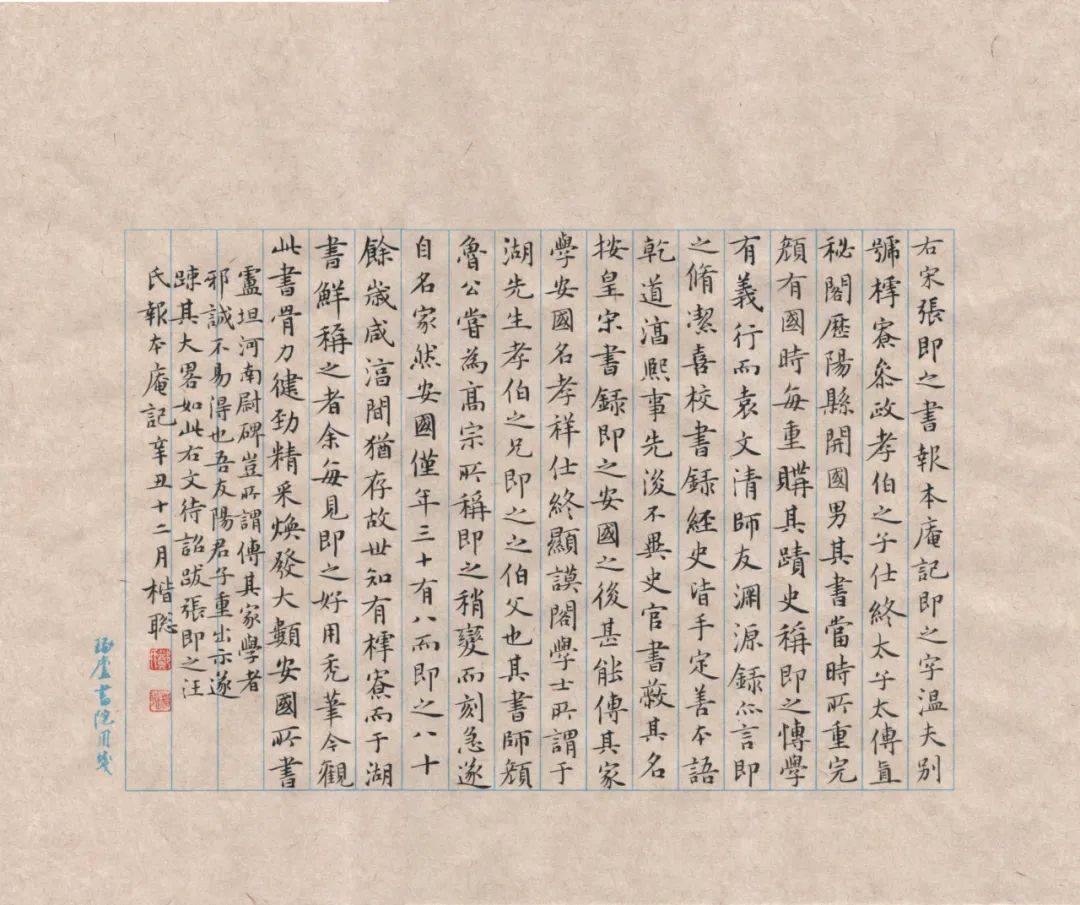 右宋張即之書報本庵記即之字温夫別
號樗寮叅政孝伯之子仕終太子太傅直
秘閣歷陽縣開國男其書當時所重完
顏有國時每重購其蹟史稱即之博學
有義行而袁文清師友淵源録亦言即
之脩潔喜校書録經史皆手定善本語
乾道淳熙事先後不異史官書蔽其名
按皇宋書録即之安國之後甚能傳其家
學安國名孝祥仕終顯謨閣學士所謂于
湖先生孝伯之兄即之之伯父也其書師顏
魯公嘗為高宗所稱即之稍變而刻急遂
自名家然安國僅年三十有八而即之八十
餘歲咸淳間猶存故世知有樗寮而于湖
書鮮稱之者余每見即之好用禿筆今觀
此書骨力健勁精采煥發大類安國所書
盧坦河南尉碑豈所謂傳其家學者
邪誠不易得也吾友陽君子重出示遂
踈其大畧如此右文待詔跋張即之汪
氏報本庵記辛丑十二月楷聡
書院用箋